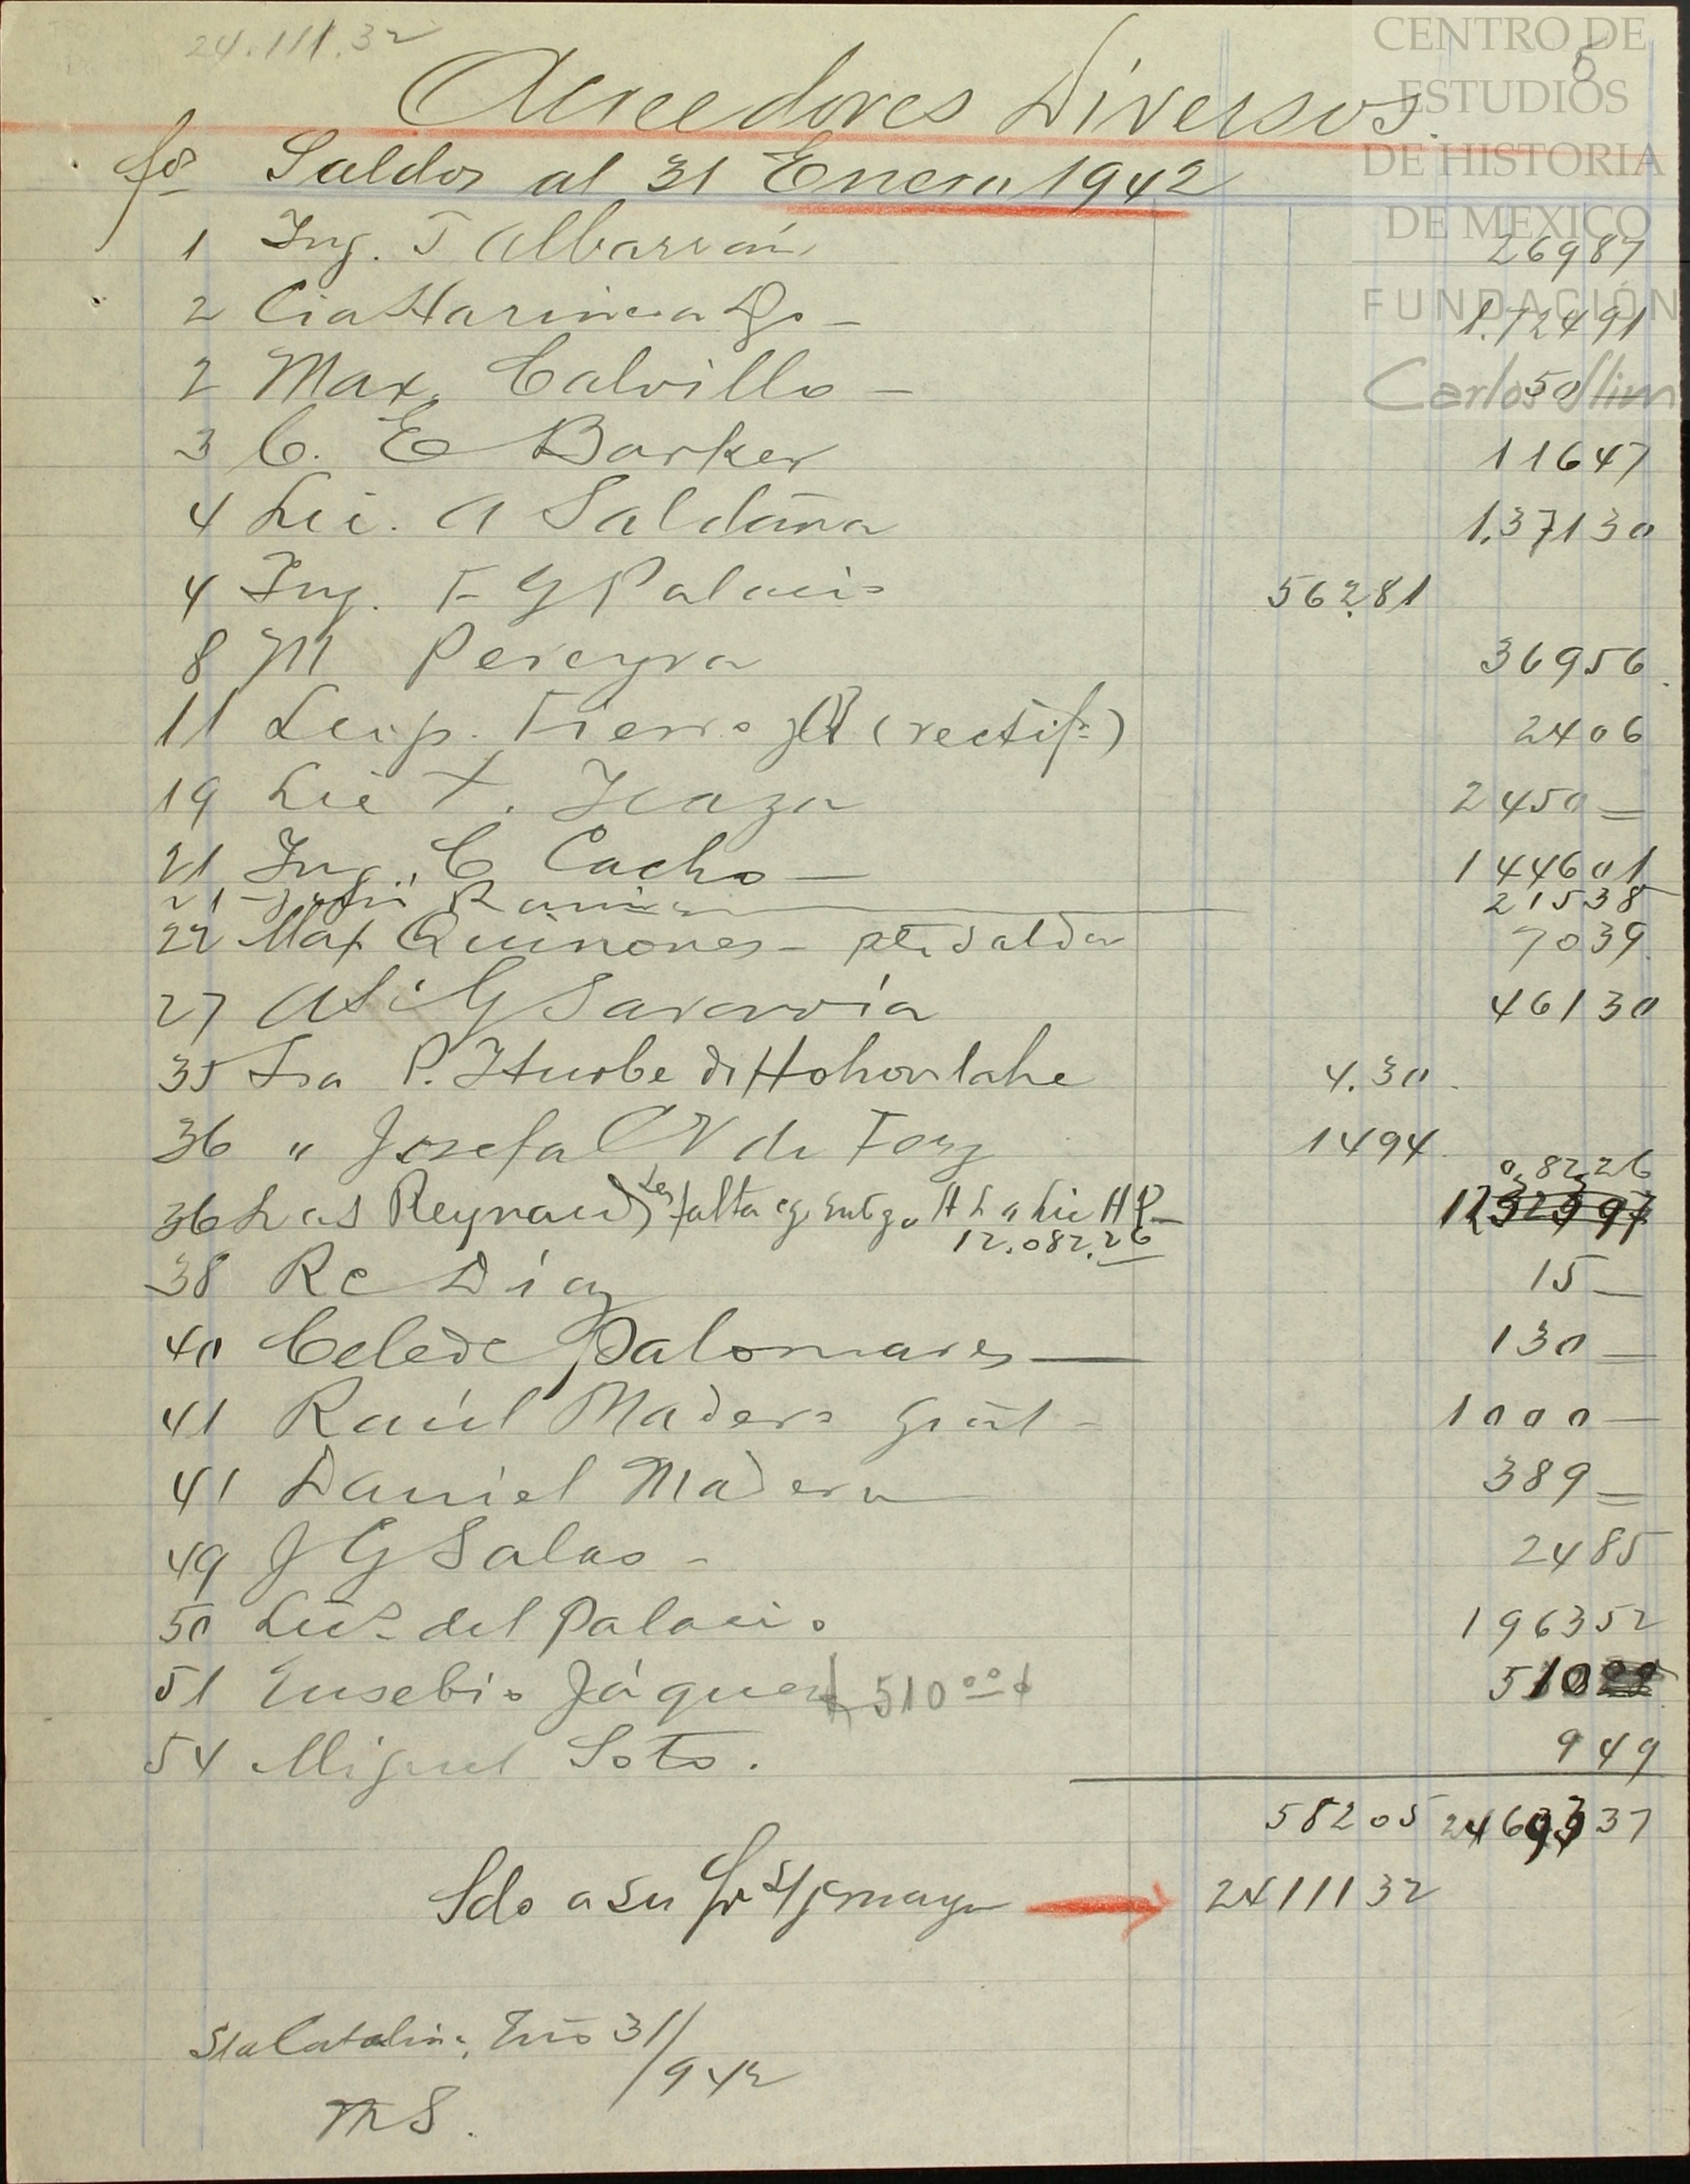 24.111.32
5
CENTRO DE
ESTUDIOS
DE HISTORIA
DE MEXICO
FUNDACIÓN
Carlos Slim
Acreedores Diversos.
fos Saldos al 31 Enero 1942
1 Ing. J Albarrán 26987
2 Cia Harinera Dgo - 1.72491
2 Max. Calvillo - 50
3 C. E Barker 11647
4 Lic. A Saldaña 1.37130
4 Ing. F G Palacio 56281
8 M Pereyra 36956
11 Leop. Fierro (rectif.) 2406
19 Lic X. Icaza 2450 =
21 Ing. C Cacho - 144601
21 21538
22 Max Quiñones - saldo 7039
27 A S i G Saravia 46130
35 Sra P. Iturbe d Hohonlahe 4.30
36 " Josefa C V de 1494
36 Las Reynaud falta A L a Lic H P - 12.082.26 0,8226
38 R C Díaz 15 -
40 Celedo Palomares - 130 =
41 Raúl Madero Gral - 1000 -
41 Daniel Madero 389 =
49 J G Salas - 2485
50 Luz del Palacio 196352
51 Eusebio Jáquez 510 00 510
54 Miguel Soto. 949
58205 2469337
Sdo a su mayor 2411132
Sta Catalina, Eno 31/942
M S.